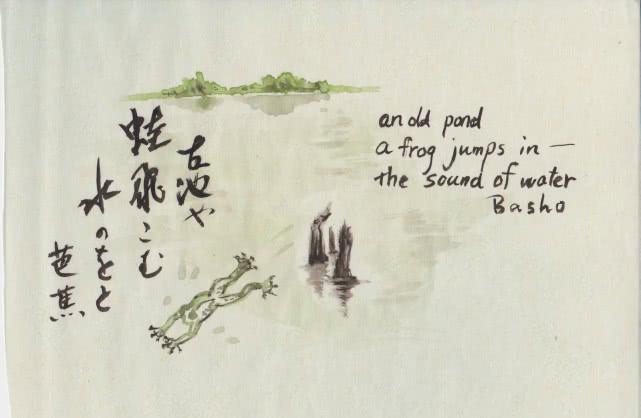 古池や
蛙飛こむ
水のをと
芭蕉
an old pond
a frog jumps in —
the sound of water
Basho